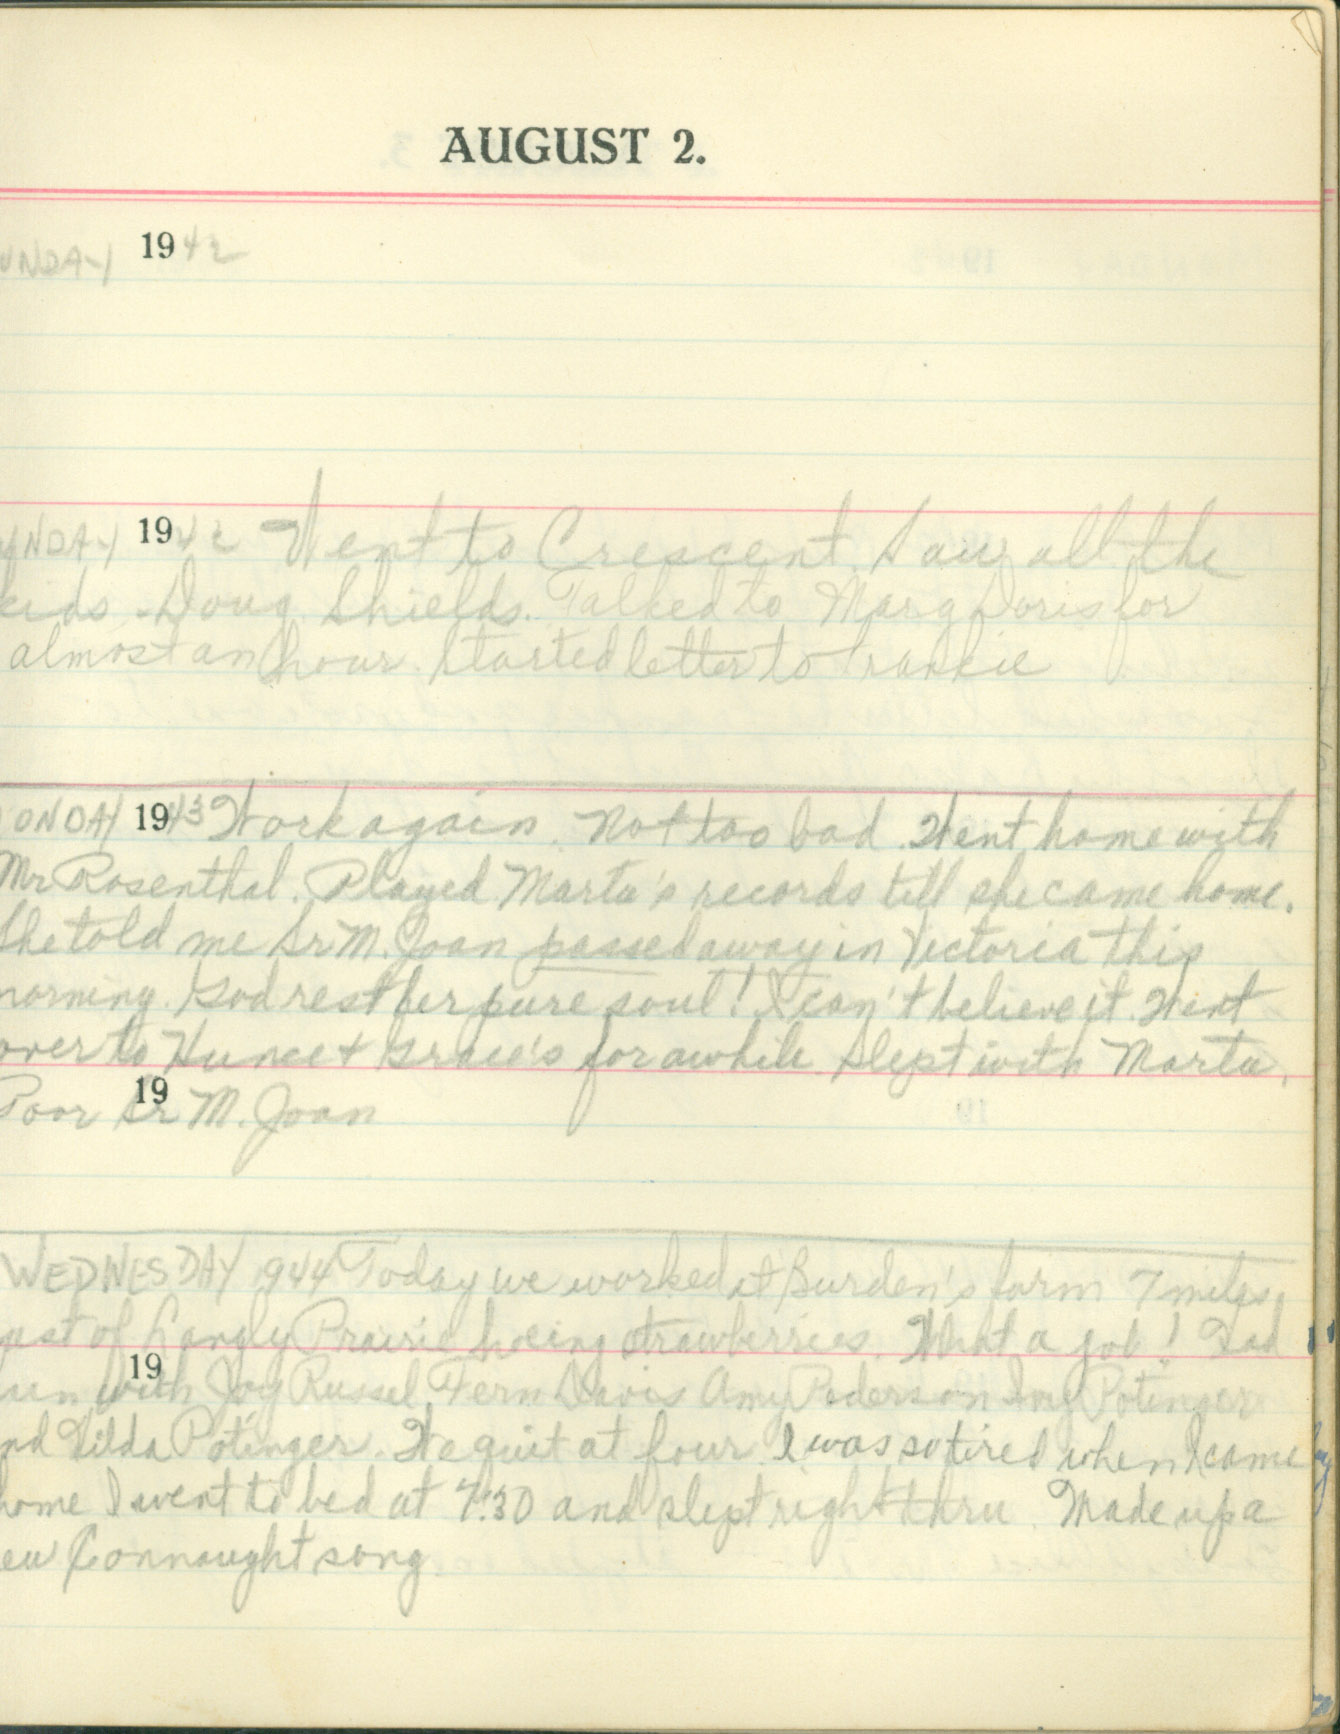 AUGUST 2.
UNDAY 1942
UNDAY 1942 Went to Crescent. Saw all the
kids. Doug Shields. Talked to Marg Doris for
almost an hour. Started letter to Frankie
ONDAY 1943 Work again. Not too bad. Went home with
Mr Rosenthal. Played Marta's records till she came home.
She told me Sr M. Joan passed away in Victoria this
morning. God rest her pure soul! I can't believe it. Went
over to & Grace's for awhile. Slept with Marta.
19
Poor Sr M. Joan
WEDNESDAY 1944 Today we worked at Burden's farm 7 miles
east of Langly Prairie hoeing strawberries. What a job! Had
19
un with Joy Russel Fern Davis Amy Pederson Ing Potinger
nd Hilda Potinger. We quit at four. I was so tired when I came
home I went to bed at 7:30 and slept right thru. Made up a
ew Connaught song.